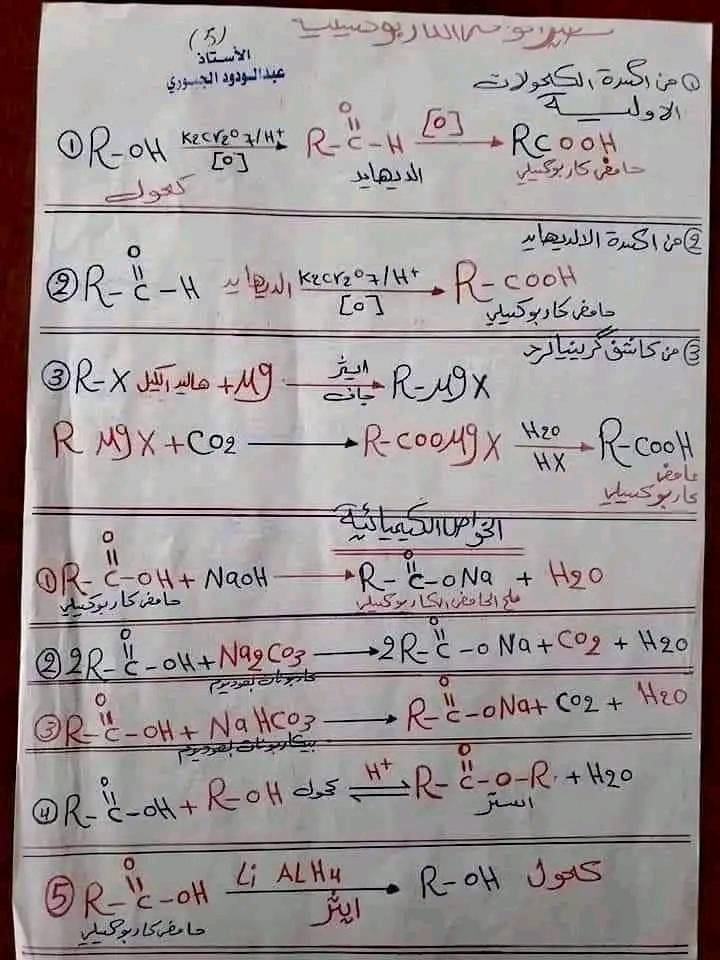 تحضير الحوامض الكاربوكسيلية
(5)
الأستاذ
عبدالودود الجبوري
① من اكسدة الكحولات
الاولية
① R-OH K2Cr2O7/H+ [O] → R-C(=O)-H [O] → RCOOH
كحول الديهايد حامض كاربوكسيلي
② من اكسدة الالديهايد
② R-C(=O)-H الديهايد K2Cr2O7/H+ [O] → R-COOH
حامض كاربوكسيلي
③ من كاشف گرينيالرد
③ R-X هاليد الكيل + Mg ايثر جاف → R-MgX
R MgX + CO2 → R-COOMgX H2O HX → R-COOH
حامض
كاربوكسيلي
الخواص الكيميائية
① R-C(=O)-OH + NaOH → R-C(=O)-ONa + H2O
حامض كاربوكسيلي ملح الحامض الكاربوكسيلي
② 2R-C(=O)-OH + Na2CO3 → 2R-C(=O)-ONa + CO2 + H2O
كاربونات الصوديوم
③ R-C(=O)-OH + NaHCO3 → R-C(=O)-ONa + CO2 + H2O
بيكاربونات الصوديوم
④ R-C(=O)-OH + R-OH كحول H+ ⇌ R-C(=O)-O-R + H2O
استر
⑤ R-C(=O)-OH Li ALH4 ايثر → R-OH كحول
حامض كاربوكسيلي